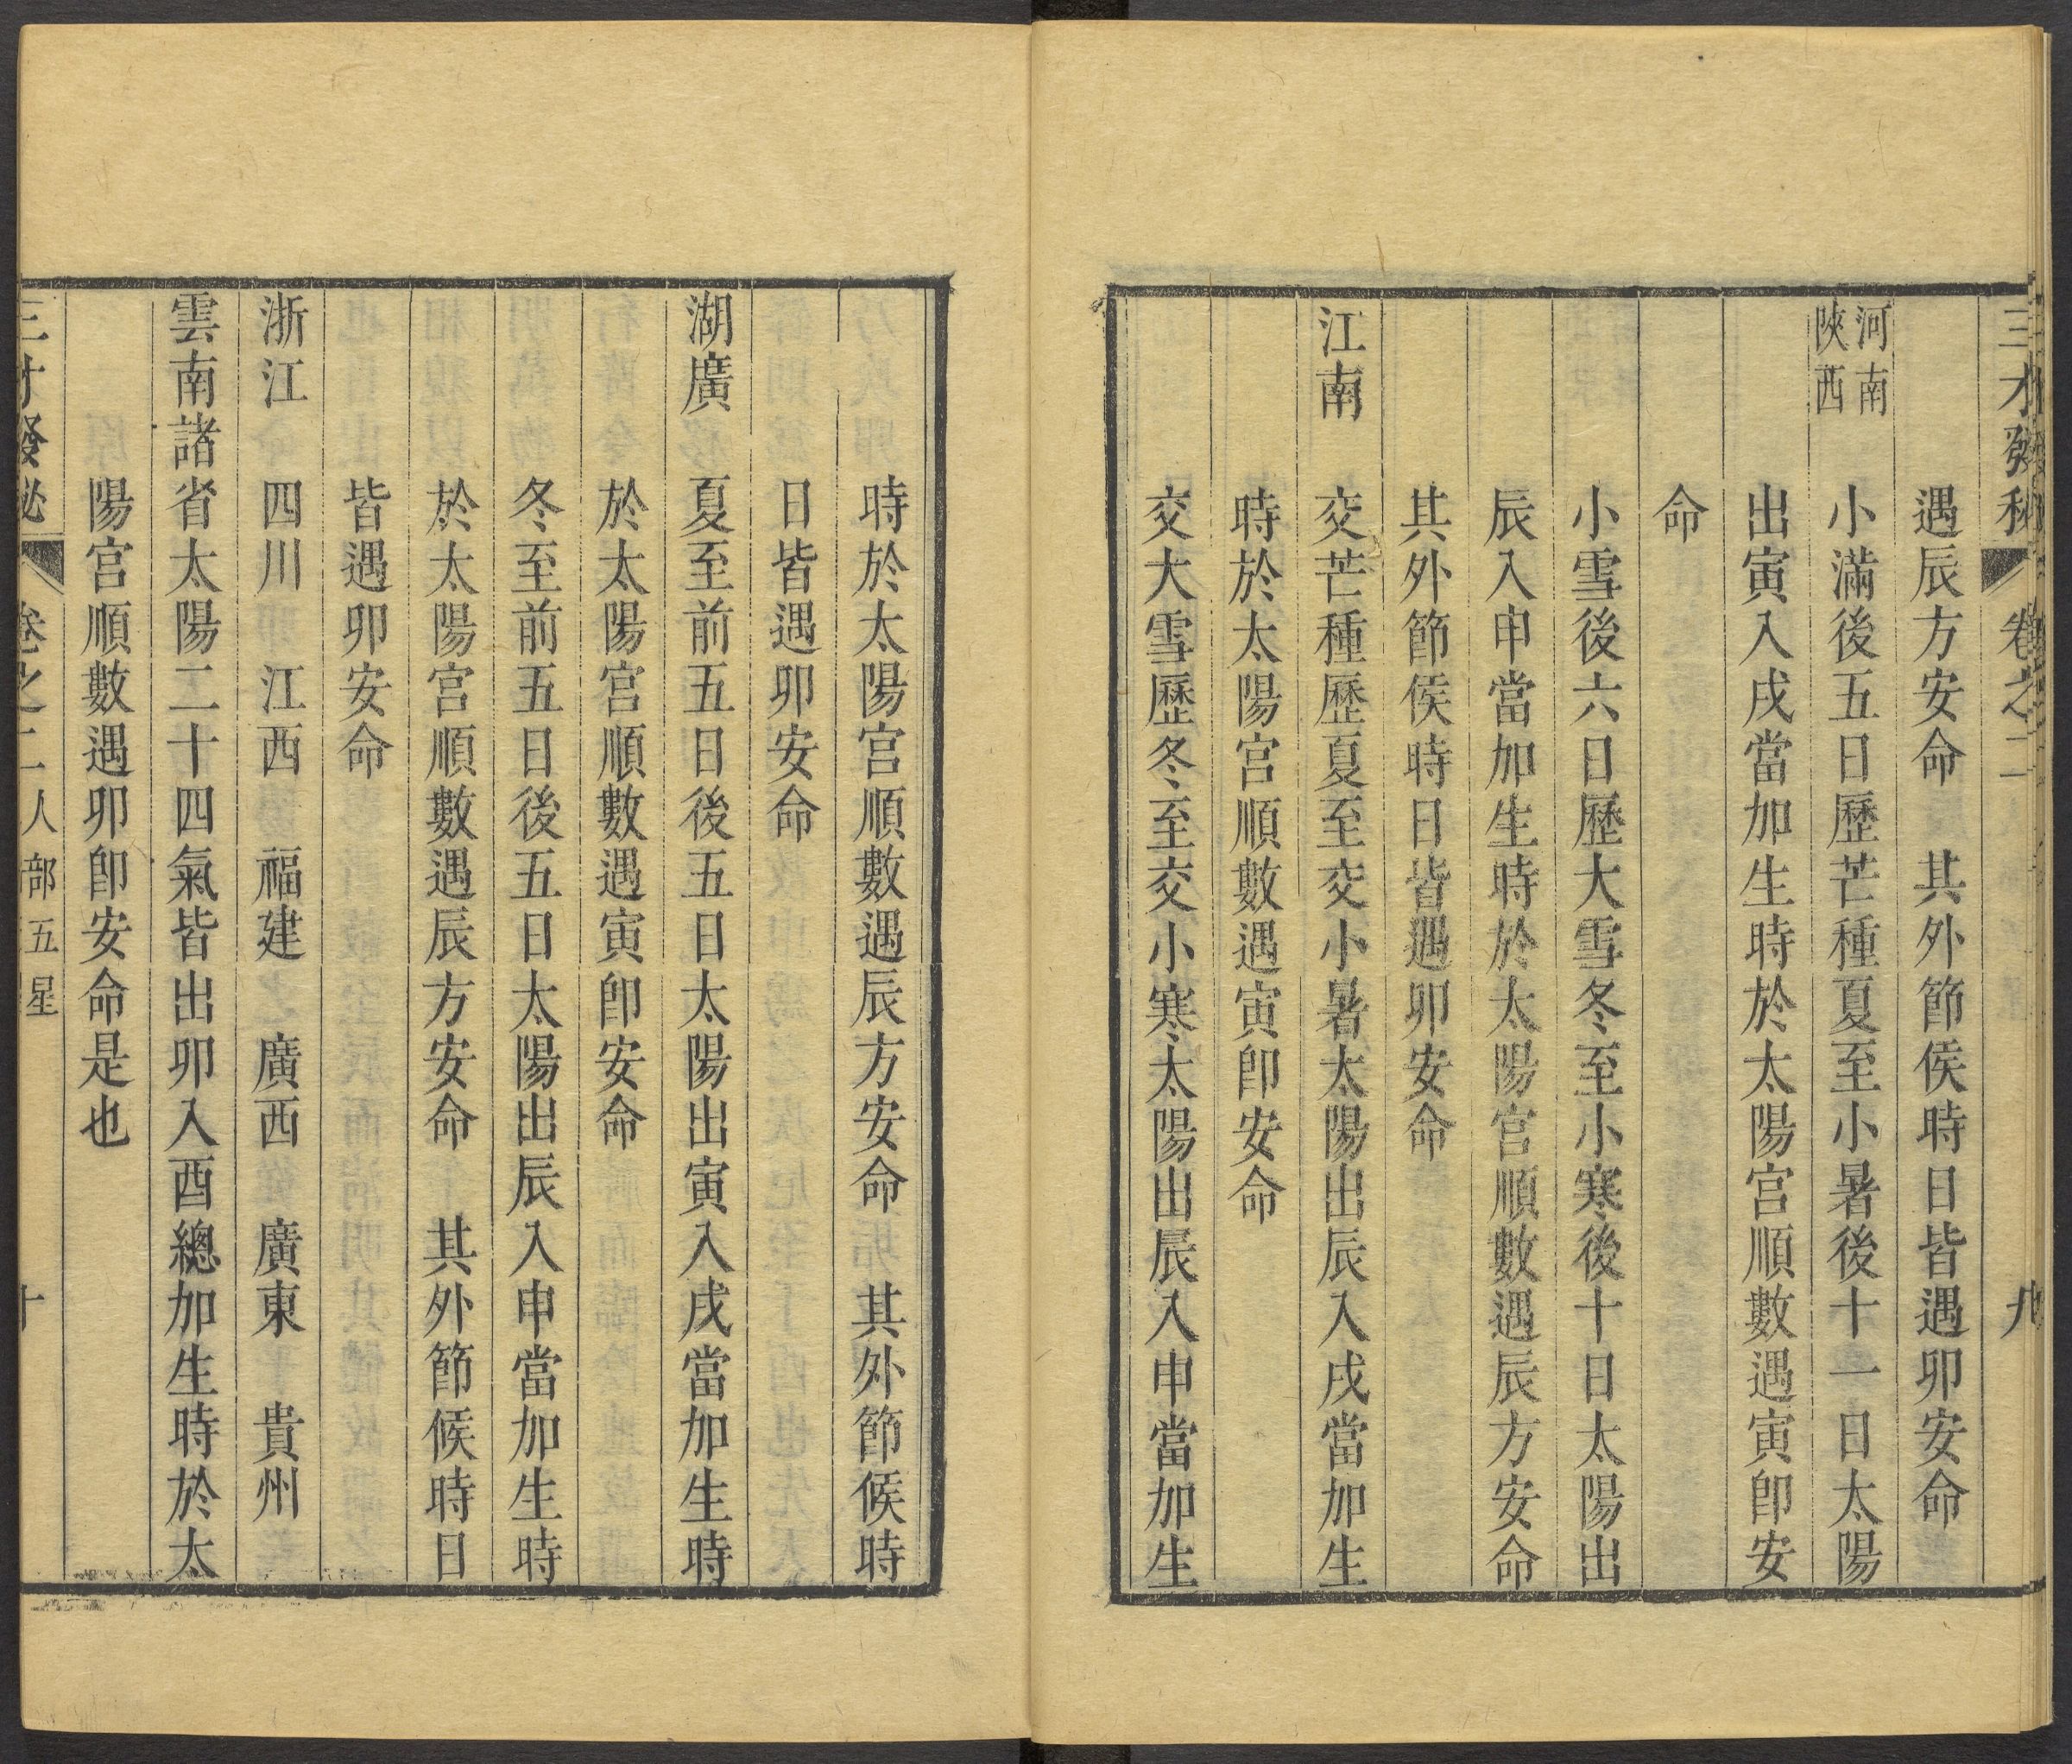 三才發秘 卷之二 九
遇辰方安命 其外節侯時日皆遇卯安命
河南
陝西
小滿後五日歷芒種夏至小暑後十一日太陽
出寅入戌當加生時於太陽宮順數遇寅卽安
命
小雪後六日歷大雪冬至小寒後十日太陽出
辰入申當加生時於太陽宮順數遇辰方安命
其外節侯時日皆遇卯安命
江南 交芒種歷夏至交小暑太陽出辰入戌當加生
時於太陽宮順數遇寅卽安命
交大雪歷冬至交小寒太陽出辰入申當加生
時於太陽宮順數遇辰方安命 其外節候時
日皆遇卯安命
湖廣 夏至前五日後五日太陽出寅入戌當加生時
於太陽宮順數遇寅卽安命
冬至前五日後五日太陽出辰入申當加生時
於太陽宮順數遇辰方安命 其外節候時日
皆遇卯安命
浙江 四川 江西 福建 廣西 廣東 貴州
雲南諸省太陽二十四氣皆出卯入酉總加生時於太
陽宮順數遇卯卽安命是也
三才發秘 卷之二 人部五星 十